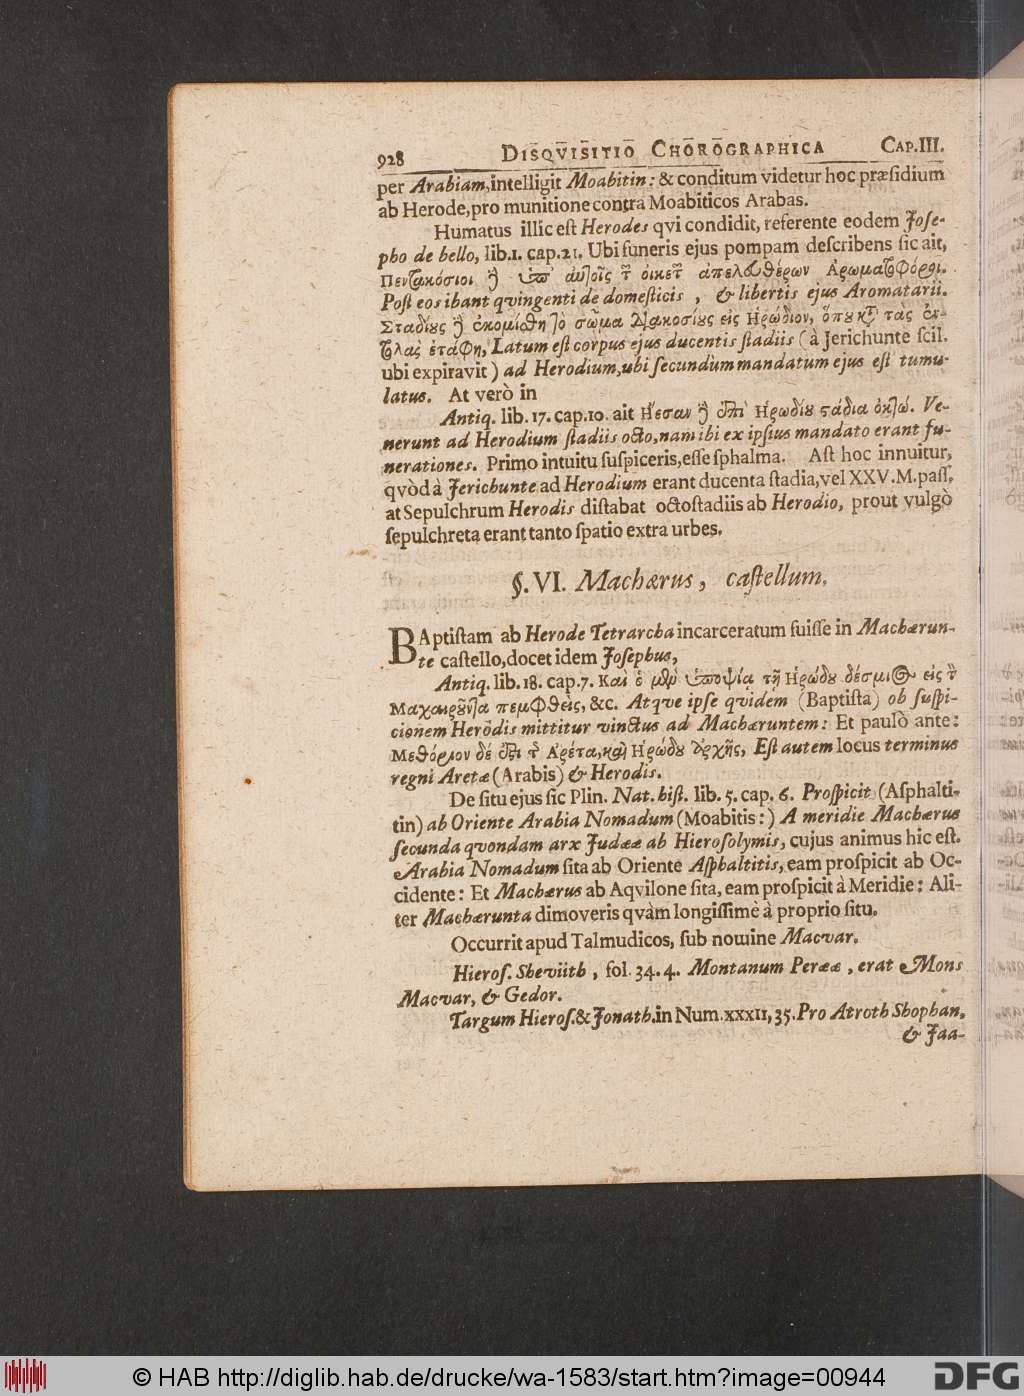 928 DISQVISITIO CHOROGRAPHICA CAP.III.
per Arabiam,intelligit Moabitin: & conditum videtur hoc præſidium
ab Herode,pro munitione contra Moabiticos Arabas.
Humatus illic eſt Herodes qvi condidit, referente eodem Joſe-
pho de bello, lib.1. cap.21. Ubi funeris ejus pompam deſcribens ſic ait,
Πεντακόσιοι ἢ ὑπ' αὐτοῖς τ οἰκετ ἀπελευθέρων Ἀρωματοφόροι.
Poſt eos ibant qvingenti de domeſticis , & libertis ejus Aromatarii.
Σταδίȣς ἢ ἐκομίσθη τὸ σῶμα Διακοσίȣς εἰς Ἡρώδιον, ὅπȣ κτ τὰς ἐν-
τολὰς ἐτάφη, Latum eſt corpus ejus ducentis ſtadiis (à Jerichunte ſcil.
ubi expiravit) ad Herodium,ubi ſecundùm mandatum ejus eſt tumu-
latus. At verò in
Antiq. lib. 17. cap.10. ait Ἤεσαν ἢ ἐπὶ Ἡρωδίȣ ϛάδια ὀκτώ. Ve-
nerunt ad Herodium ſtadiis octo,nam ibi ex ipſius mandato erant fu-
nerationes. Primo intuitu ſuſpiceris,eſſe ſphalma. Aſt hoc innuitur,
qvòd à Jerichunte ad Herodium erant ducenta ſtadia,vel XXV.M.paſſ.
at Sepulchrum Herodis diſtabat octoſtadiis ab Herodio, prout vulgò
ſepulchreta erant tanto ſpatio extra urbes.
§. VI. Machærus, caſtellum.
BAptiſtam ab Herode Tetrarcha incarceratum fuiſſe in Machærun-
te caſtello,docet idem Joſephus,
Antiq. lib. 18. cap.7. Καὶ ὁ μὲν ὑποψία τῆ Ἡρώδȣ δέσμιος εἰς τ
Μαχαιρȣ͂ντα πεμφθεὶς, &c. Atqve ipſe qvidem (Baptiſta) ob ſuſpi-
cionem Herodis mittitur vinctus ad Machæruntem: Et paulò ante:
Μεθόριον δέ ἐστι τ Ἀρέτα, καὶ Ἡρώδȣ ἀρχῆς, Eſt autem locus terminus
regni Aretæ (Arabis) & Herodis.
De ſitu ejus ſic Plin. Nat. hiſt. lib. 5. cap. 6. Proſpicit (Aſphalti-
tin) ab Oriente Arabia Nomadum (Moabitis:) A meridie Machærus
ſecunda qvondam arx Judææ ab Hieroſolymis, cujus animus hic eſt.
Arabia Nomadum ſita ab Oriente Aſphaltitis, eam proſpicit ab Oc-
cidente: Et Machærus ab Aqvilone ſita, eam proſpicit à Meridie: Ali-
ter Machærunta dimoveris qvàm longiſſimè à proprio ſitu.
Occurrit apud Talmudicos, ſub nomine Macvar.
Hieroſ. Sheviith , fol. 34. 4. Montanum Perææ , erat Mons
Macvar, & Gedor.
Targum Hieroſ.& Jonath.in Num.XXXII, 35. Pro Atroth Shophan,
& Jaa-
© HAB http://diglib.hab.de/drucke/wa-1583/start.htm?image=00944
DFG